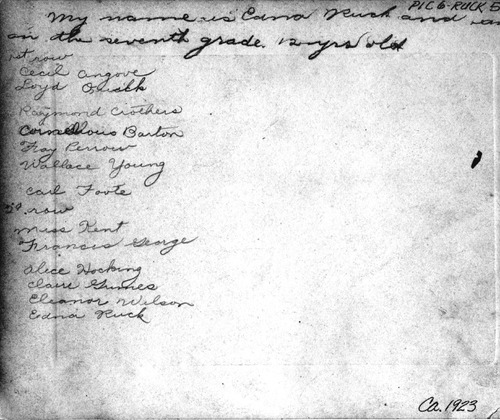 PIC 6-RUCK 5
My name is Edna Ruck and
in the seventh grade. 12 yrs old
1st row
Cecil Angove
Loyd
Raymond Crothers
Cornellious Barton
Fray Perrow
Wallace Young
Carl Foote
row
Miss Kent
Francis George
Alice Hocking
Claire Guines
Eleanor Wilson
Edna Ruck
Ca. 1923